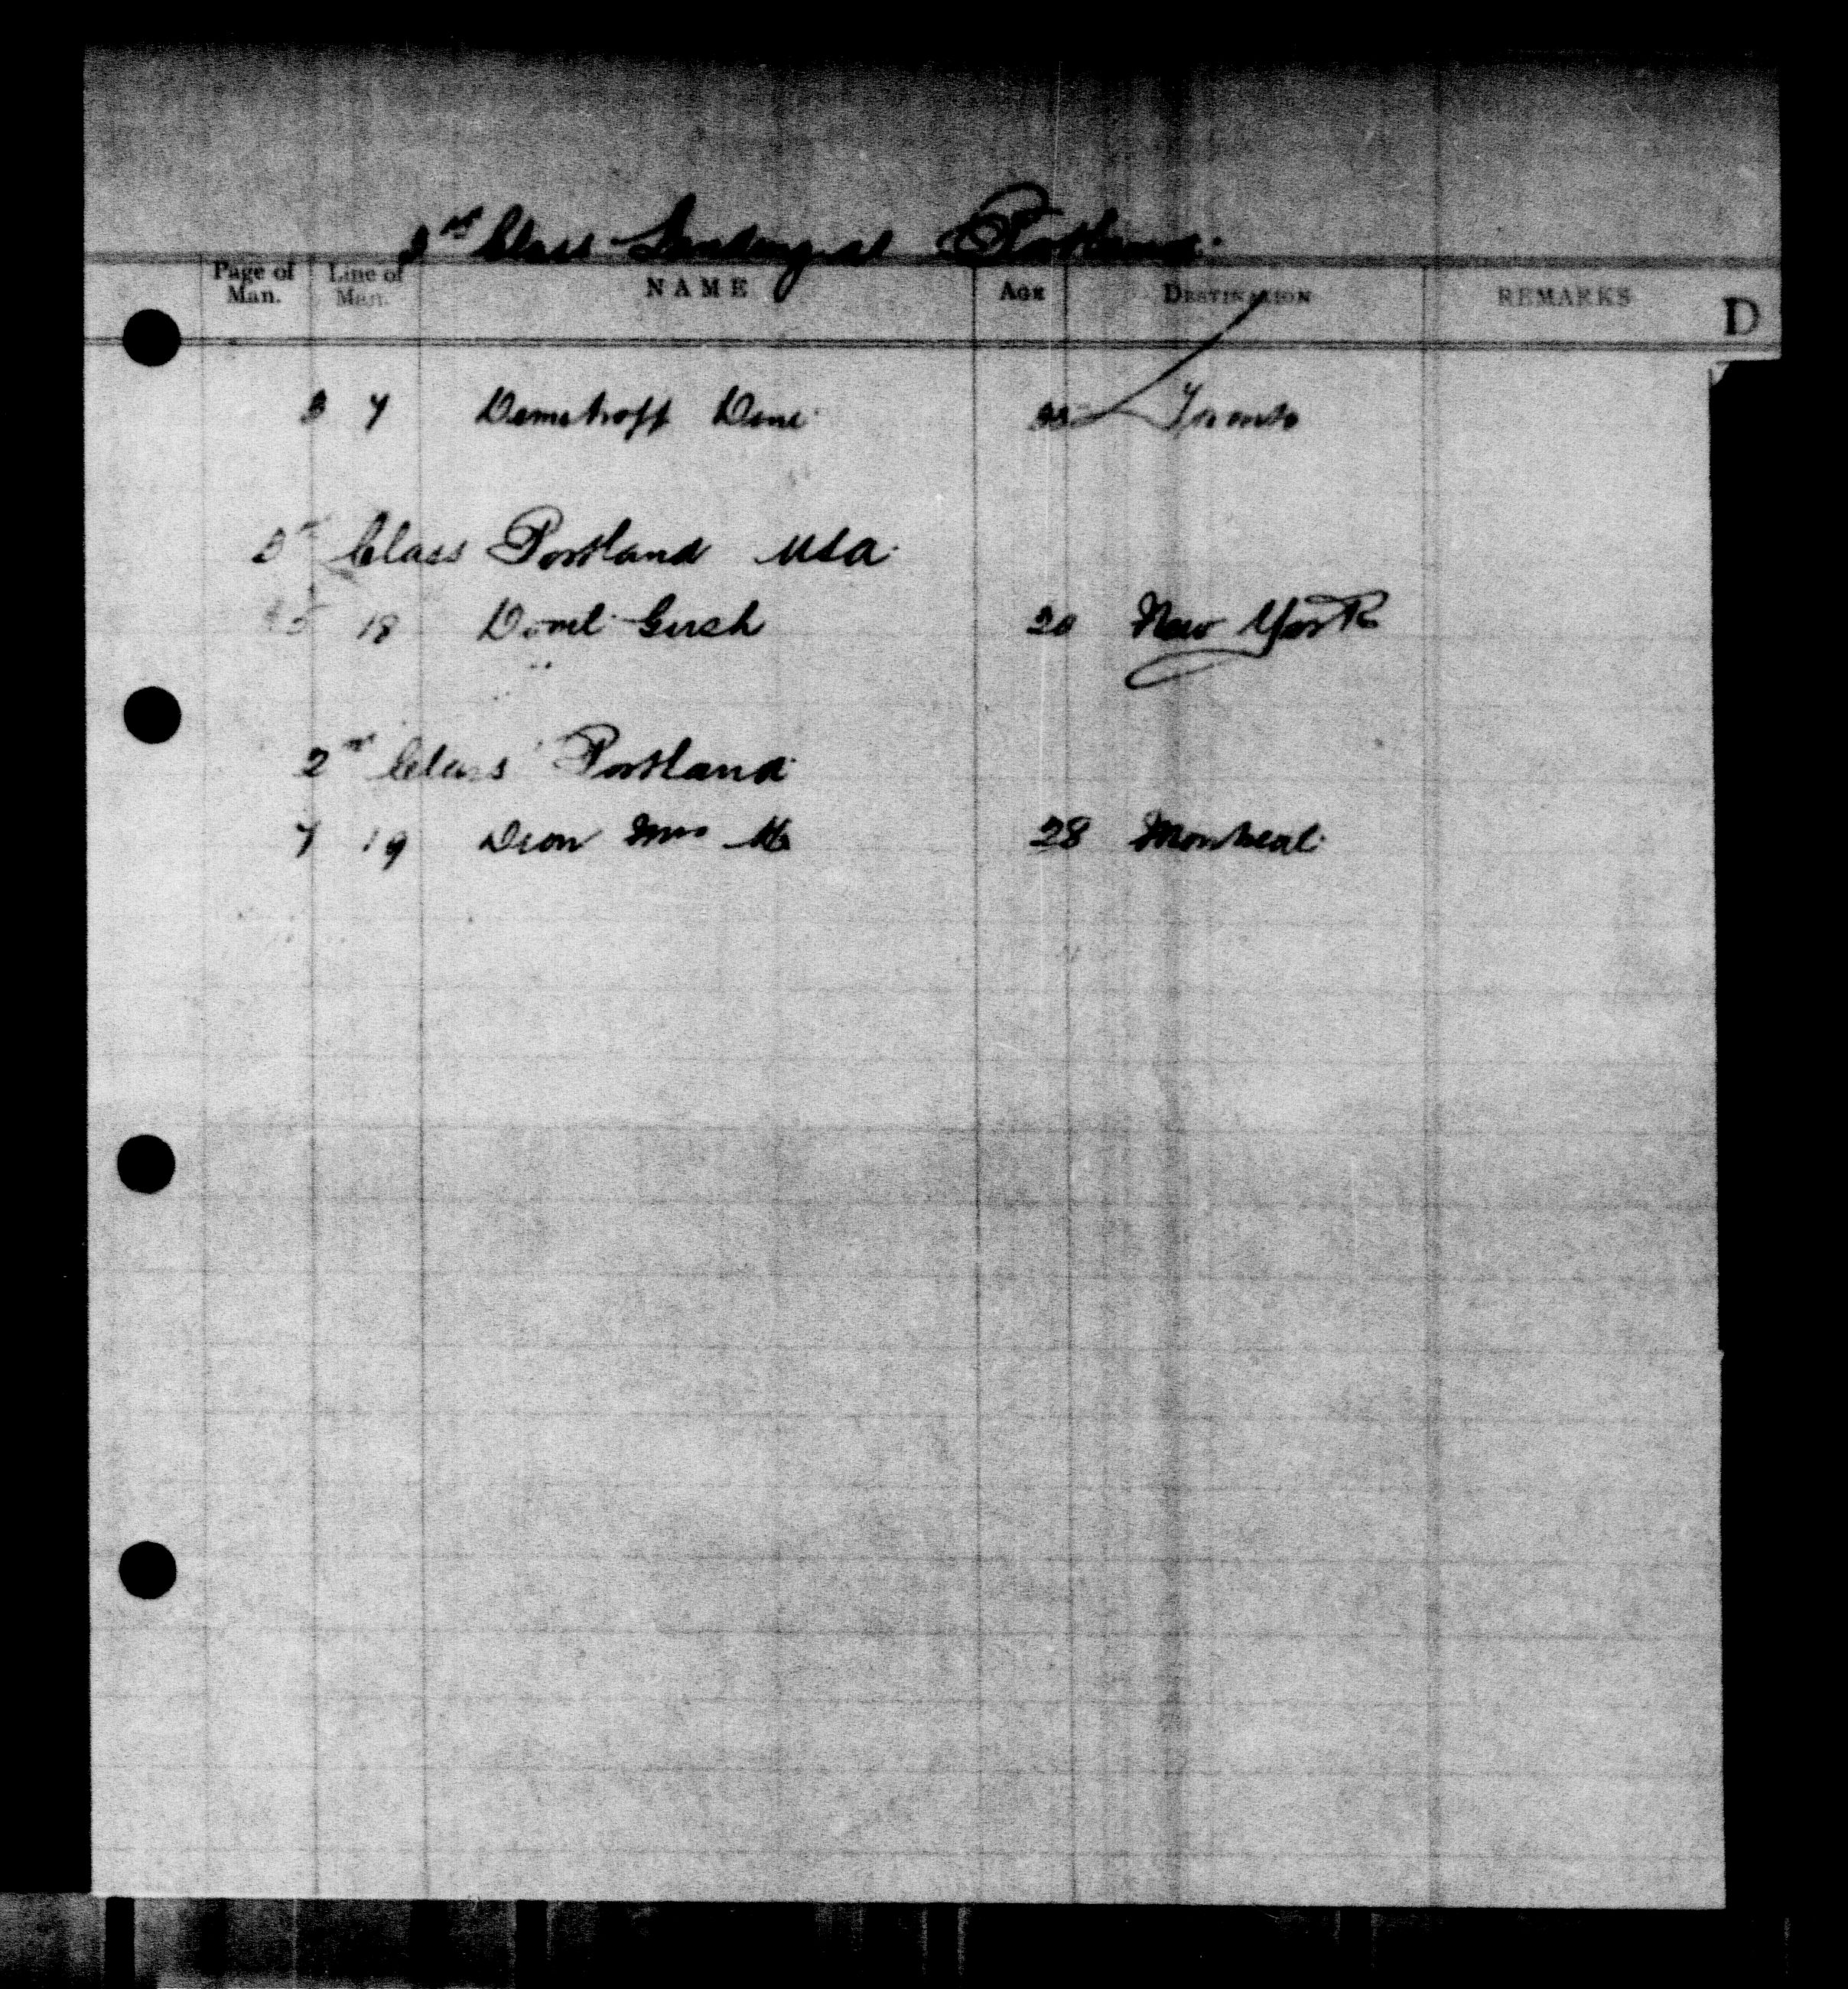 Class Landing at Portland.
Page of Man. Line of Man. NAME AGE DESTINATION REMARKS D
7 Demetroff Toronto
Class Portland USA
18 Gersh 20 New York
2nd Class Portland
7 19 Dion Mrs M 28 Montreal